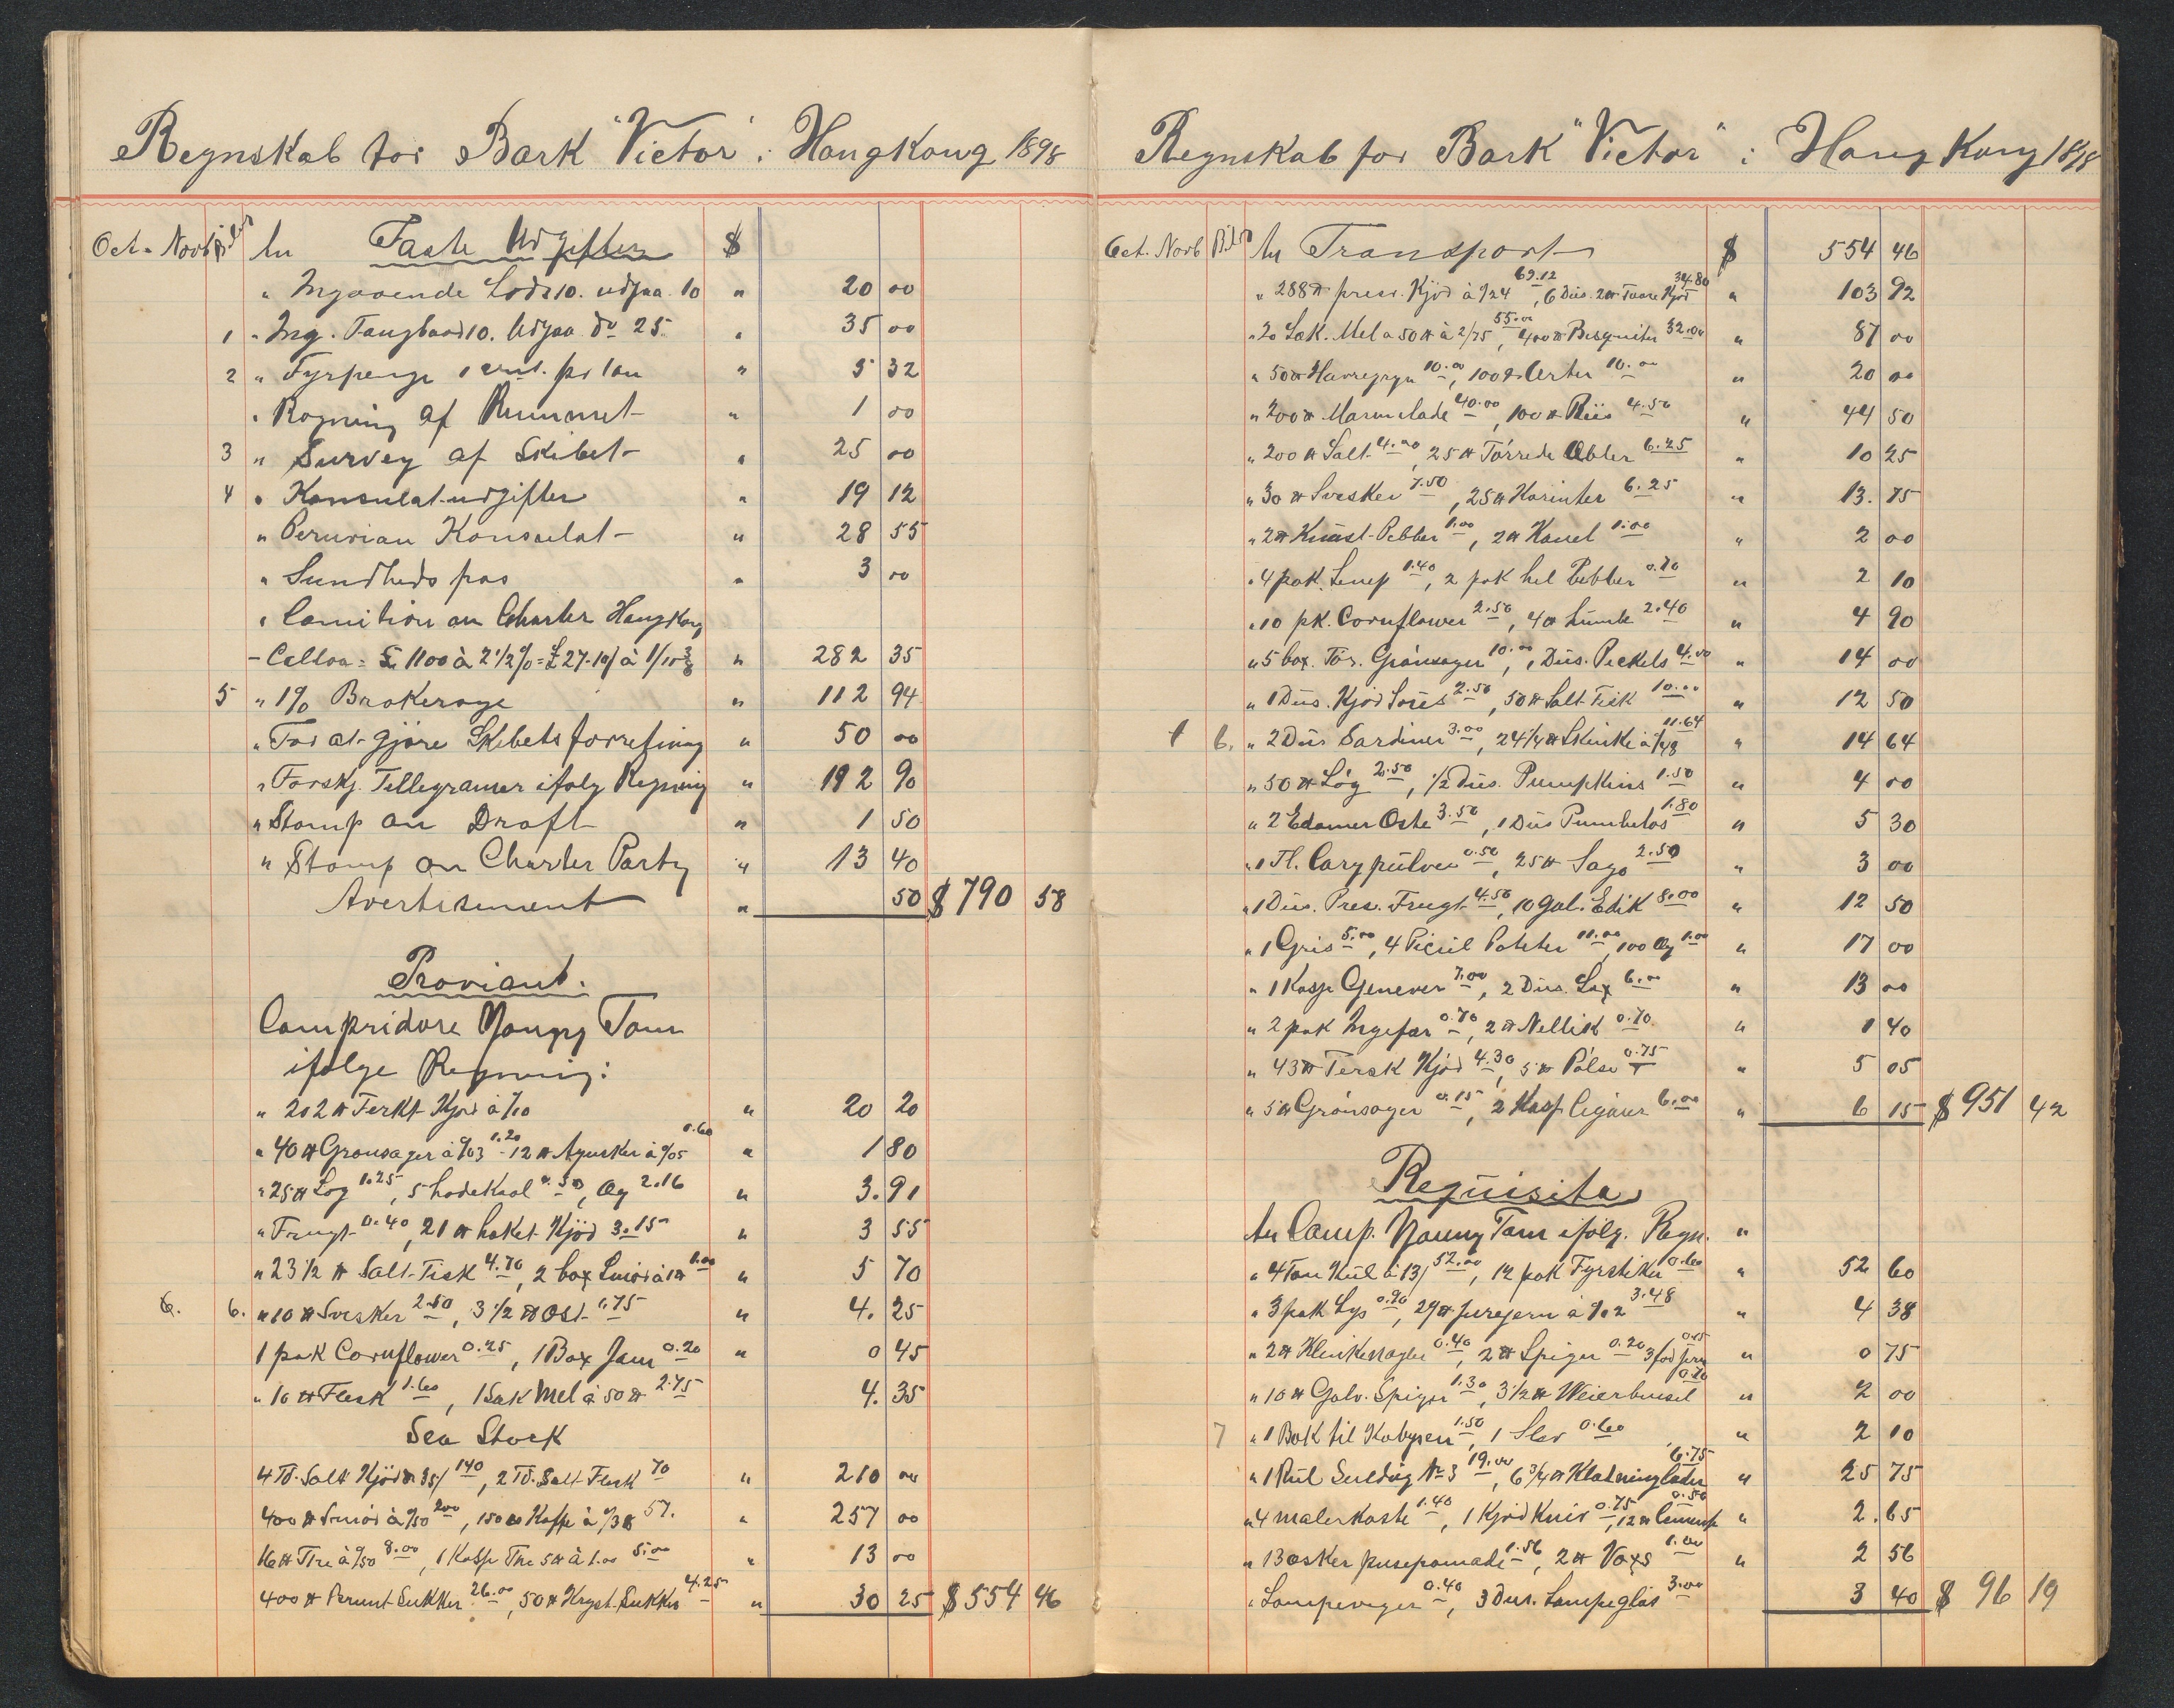 Regnskab for Bark "Victor" i HongKong 1898
Oct - Novb Bilag An Faste Udgifter $
" Ingaaende Lods 10. udgaa. 10 " 20 00
1 " Ing. Taugbaad 10. Udgaa do 25 " 35 00
2 " Fyrpenge 1 cent. pr ton " 5 32
" Rögning af Rummet " 1 00
3 " Survey af Skibet " 25 00
4 " Konsulat-udgifter " 19 12
" Peruvian Konsulat " 28 55
" Sundheds pas " 3 00
" Comition on Charter HongKong
- Calloa = £ 1100 à 2 1/2 % = £ 27-10/ à 1/10 3/8 " 282 35
5 " 1% Brokerage " 112 94
" For at gjöre Skibets forretning " 50 00
" Forskj. Tellegramer ifölg Regning " 192 90
" Stamp on Draft " 1 50
" Stamp on Charter Party " 13 40
Avertisement " 50 $ 790 58
Proviant.
Compridore Young Tom
ifölge Regning:
" 202 lb Ferkt Kjöd à /10 " 20 20
" 40 lb Grönsager à %03 1.20 - 12 lb Agurker à %05 0.60 " 1 80
" 25 lb Lög 1.25, 5 hodeKaal 0.50, Æg 2.16 " 3.91
" Frugt 0.40, 21 lb haket Kjöd 3.15 " 3 55
" 23 1/2 lb Salt-Fisk 4.70, 2 box Smör à 1 lb 1.00 " 5 70
6. 6. " 10 lb Svesker 2.50, 3 1/2 lb Ost 1.75 " 4.25
1 pak Cornflower 0.25, 1 Box Jam 0.20 " 0 45
" 16 lb Flesk 1.60, 1 Sæk Mel à 50 lb 2.75 " 4.35
Sea Stock
4 Td. Salt Kjöd à 35/ 140, 2 Td. Salt Flesk 70 " 210 00
400 lb Smör à %50 200, 150 lb Kaffe à %38 57. " 257 00
16 lb The à %50 8.00, 1 Kasse The 5 lb à 1.00 5.00 " 13 00
400 lb Perunt Sukker 26.00, 50 lb Kryst. Sukker 4.25 " 30 25 $ 554 46
Regnskab for Bark "Victor" i Hong Kong 1898
Oct. Novb Bilag An Transport $ 554 46
" 288 lb pres. Kjöd à %24 69.12, 6 Dus. 2 lb Kjöd 34.80 " 103 92
" 20 Sæk. Mel a 50 lb à 2/75 55.00, 400 lb Bisquiter 32.00 " 87 00
" 50 lb Havregryn 10.00, 100 lb Erter 10.00 " 20 00
" 200 lb Marmelade 40.00, 100 lb Riis 4.50 " 44 50
" 200 lb Salt 4.00, 25 lb Törrede Æbler 6.25 " 10 25
" 30 lb Svesker 7.50, 25 lb Korinter 6.25 " 13.75
" 2 lb Knust-Pebber 1.00, 2 lb Kanel 1.00 " 2 00
" 4 pak. Senep 1.40, 2 pak hel Pebber 0.70 " 2 10
" 10 pk. Cornflower 2.50, 4 lb Humle 2.40 " 4 90
" 5 box. Tör. Grönsager 10.00, 1 Dus. Peckels 4.00 " 14 00
" 1 Dus. Kjöd Soüs 2.50, 50 lb Salt Fisk 10.00 " 12 50
1 6. " 2 Dus Sardiner 3.00, 24 1/4 lb Skinke à %48 11.64 " 14 64
" 50 lb Lög 2.50, 1/2 Dus. Pumpkins 1.50 " 4 00
" 2 Edamer Oste 3.50, 1 Dus 1.80 " 5 30
" 1 Fl. Cary pulver 0.50, 25 lb Sago 2.50 " 3 00
" 1 Dus. Pres. Frugt 4.50, 10 Gal. Edik 8.00 " 12 50
" 1 Gris 5.00, 4 Picül Poteter 11.00, 100 Æg 1.00 " 17 00
" 1 Kasse Genever 7.00, 2 Dus. Lax 6.00 " 13 00
" 2 pak Ingefær 0.70, 2 lb Nellik 0.70 " 1 40
" 43 lb Fersk Kjöd 4.30, 5 lb Pölse 0.75 " 5 05
" 5 lb Grönsager 0.15, 2 Kasse Cigarer 6.00 " 6 15 $ 951 42
Requisita
An Comp. Young Tom ifölg. Regn. "
" 4 Ton Kul à 13/ 52.00, 12 pak Fyrstiker 0.60 " 52 60
" 3 pak Lys 0.90, 29 lb à %12 3.48 " 4 38
" 2 lb Klinkenagler 0.40, 2 lb Spiger 0.20 3 fod jern 0.15 " 0 75
" 10 lb Galv. Spiger 1.30, 3 1/2 lb 0.70 " 2 00
7 " 1 Bok til Kabysen 1.50, 1 Slev 0.60 " 2 10
" 1 Rul Seildug No 3 19.00, 6 3/4 lb Klædninglæder 6.75 " 25 75
" 4 malerkoste 1.40, 1 Kjöd Kniv 0.75, 12 lb Cement 0.50 " 2.65
" 13 æsker pusepomade 1.56, 2 lb Voxs 1.00 " 2 56
" Lampeveger 0.40, 3 Dus. Lampeglas 3.00 3 40 $ 96 19